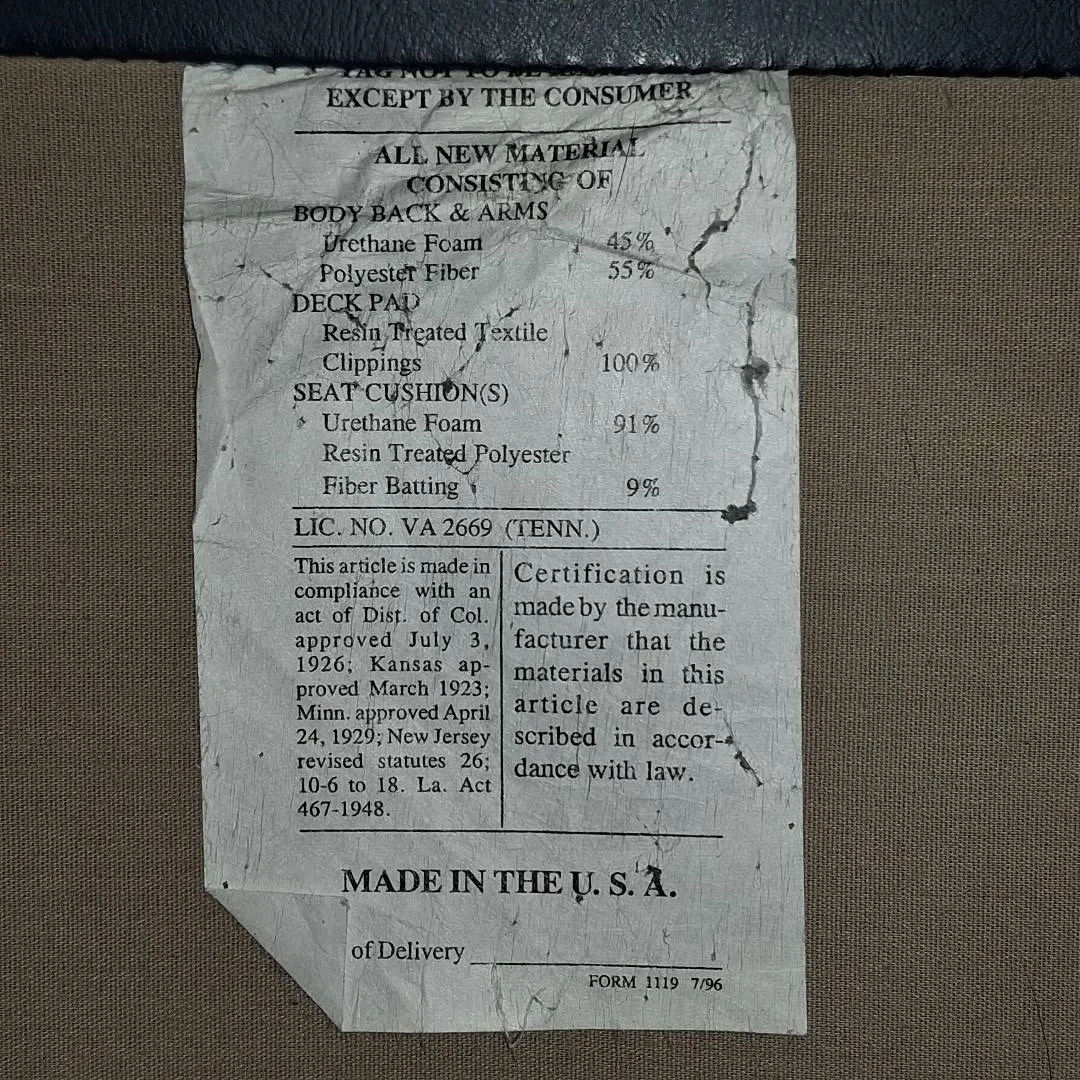 TAG NOT TO BE
EXCEPT BY THE CONSUMER
ALL NEW MATERIAL
CONSISTING OF
BODY BACK & ARMS
Urethane Foam 45%
Polyester Fiber 55%
DECK PAD
Resin Treated Textile
Clippings 100%
SEAT CUSHION(S)
Urethane Foam 91%
Resin Treated Polyester
Fiber Batting 9%
LIC. NO. VA 2669 (TENN.)
This article is made in
compliance with an
act of Dist. of Col.
approved July 3,
1926; Kansas ap-
proved March 1923;
Minn. approved April
24, 1929; New Jersey
revised statutes 26;
10-6 to 18. La. Act
467-1948.
Certification is
made by the manu-
facturer that the
materials in this
article are de-
scribed in accor-
dance with law.
MADE IN THE U. S. A.
of Delivery
FORM 1119 7/96